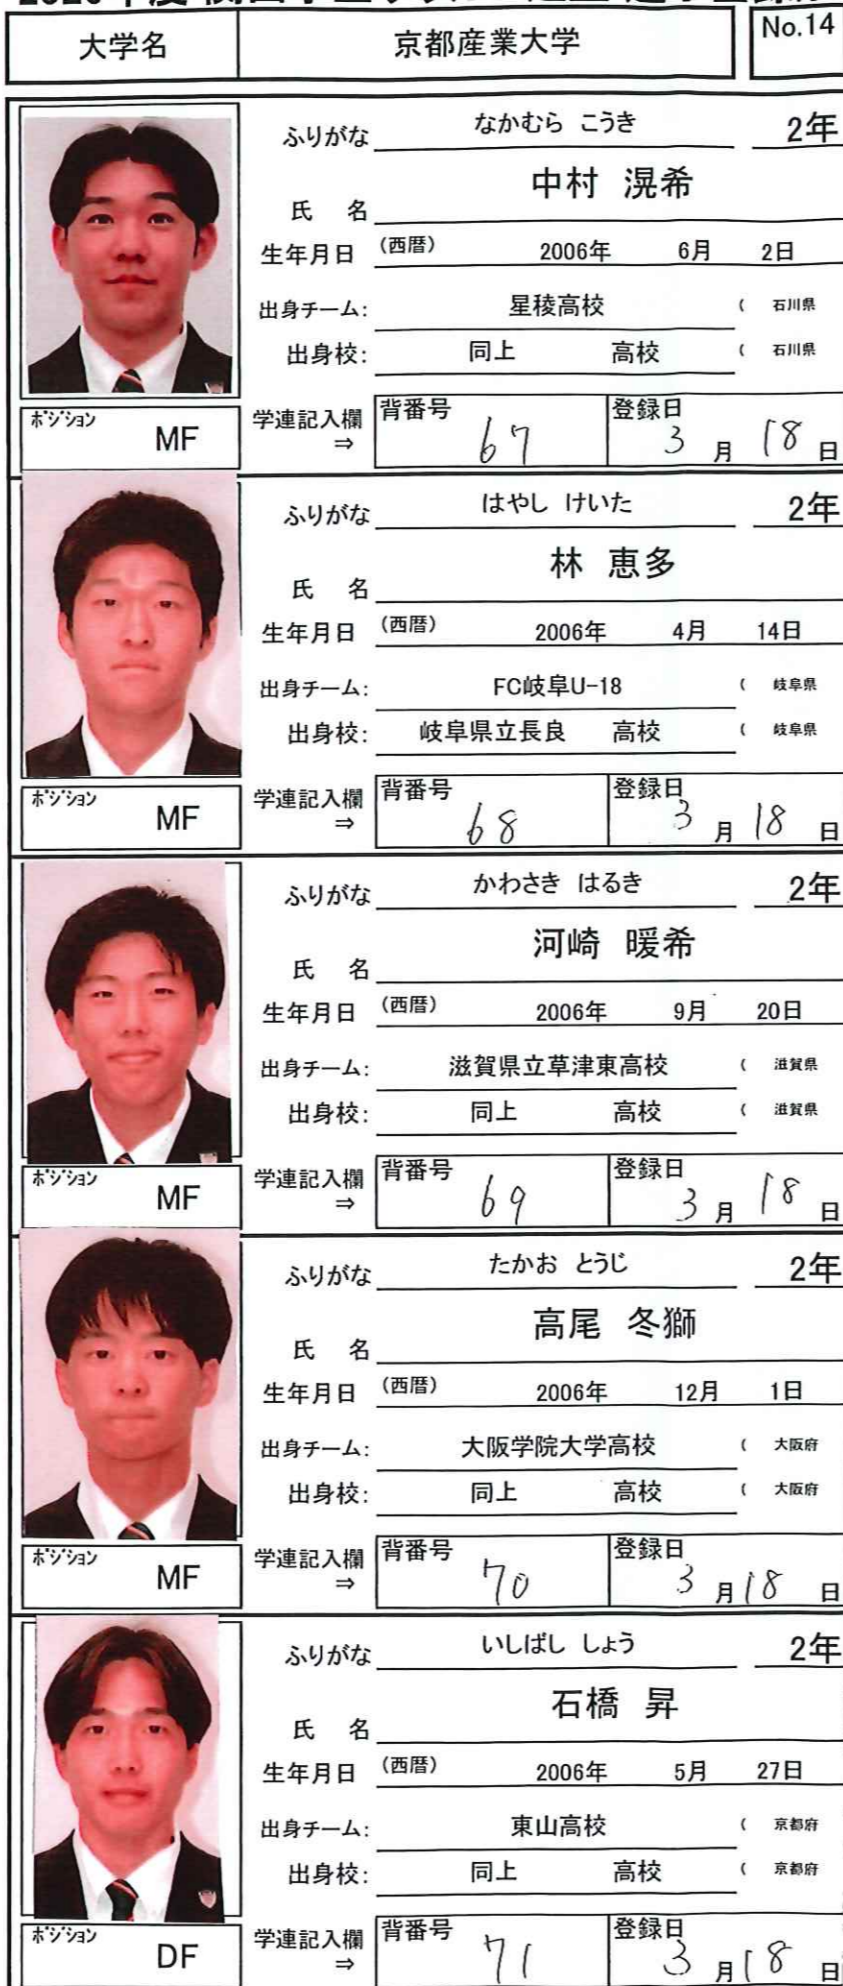 大学名 京都産業大学 No.14
ふりがな なかむら こうき 2年
氏 名 中村 滉希
生年月日 (西暦) 2006年 6月 2日
出身チーム: 星稜高校 ( 石川県
出身校: 同上 高校 ( 石川県
ポジション MF 学連記入欄⇒ 背番号 67 登録日 3月 18日
ふりがな はやし けいた 2年
氏 名 林 恵多
生年月日 (西暦) 2006年 4月 14日
出身チーム: FC岐阜U-18 ( 岐阜県
出身校: 岐阜県立長良 高校 ( 岐阜県
ポジション MF 学連記入欄⇒ 背番号 68 登録日 3月 18日
ふりがな かわさき はるき 2年
氏 名 河崎 暖希
生年月日 (西暦) 2006年 9月 20日
出身チーム: 滋賀県立草津東高校 ( 滋賀県
出身校: 同上 高校 ( 滋賀県
ポジション MF 学連記入欄⇒ 背番号 69 登録日 3月 18日
ふりがな たかお とうじ 2年
氏 名 高尾 冬獅
生年月日 (西暦) 2006年 12月 1日
出身チーム: 大阪学院大学高校 ( 大阪府
出身校: 同上 高校 ( 大阪府
ポジション MF 学連記入欄⇒ 背番号 70 登録日 3月 18日
ふりがな いしばし しょう 2年
氏 名 石橋 昇
生年月日 (西暦) 2006年 5月 27日
出身チーム: 東山高校 ( 京都府
出身校: 同上 高校 ( 京都府
ポジション DF 学連記入欄⇒ 背番号 71 登録日 3月 18日